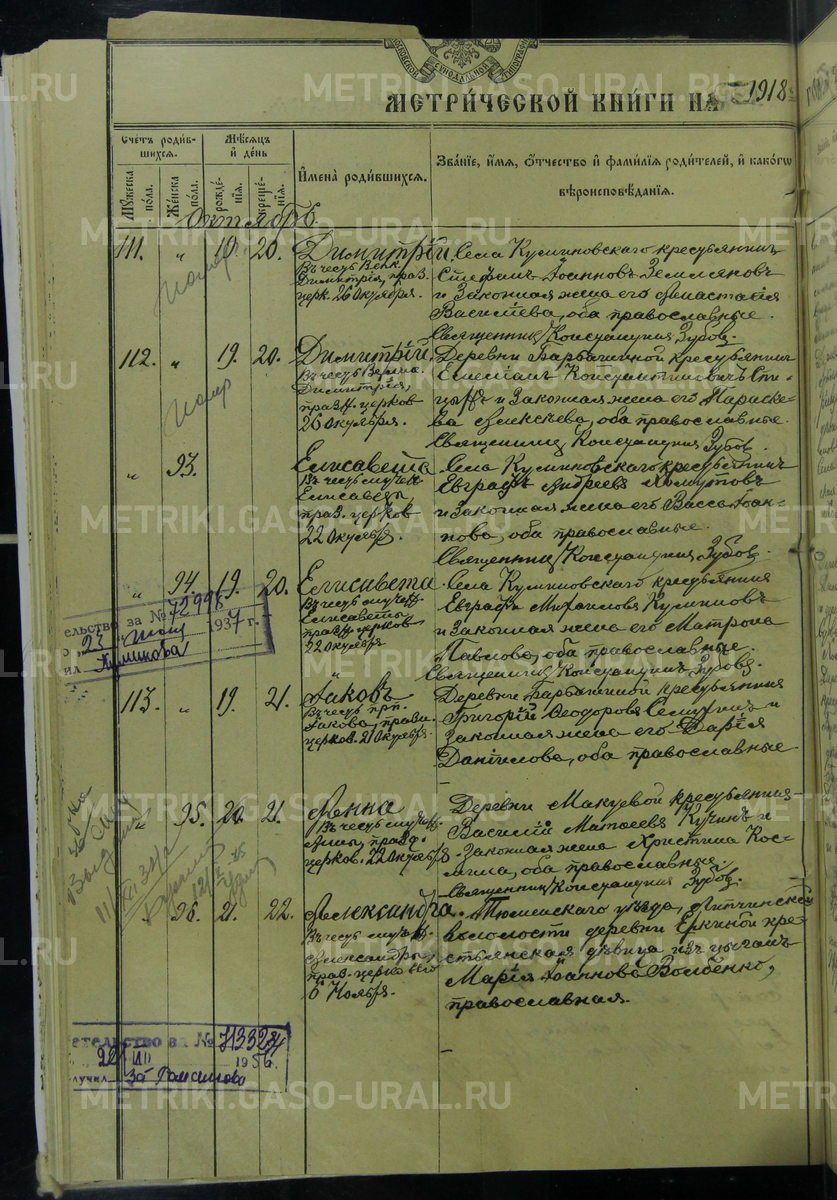 МОСКОВСКОЙ СѴНОДАЛЬНОЙ ТИПОГРАФІИ
МЕТРИ́ЧЕСКОЙ КНИ́ГИ НА 1918
Счетъ роди́вшихся.
Мѣсяцъ и день
Имена роди́вшихся.
Зва́ніе, и́мя, о́тчество и фами́лія роди́телей, и како́гѡ вѣроисповѣ́данія.
Му́жеска по́ла.
Же́нска по́ла.
рожде́нія.
креще́нія.
Октябрь
111. " 19 20. Димитрій
Въ честь Велк.
Димитрія, праз.
церк. 26 Октября.
Села Куминовскаго крестьянинъ
Стефанъ Іоанновъ Земляновъ
и законная жена его Анастасія
Васильева, оба православные.
Священникъ Константинъ Зубовъ.
112. " 19. 20. Димитрій
Въ честь
Димитрія,
празд. церков
26 Октября.
Деревни Барбашиной крестьянинъ
Емеліанъ Константиновичъ
и законная жена его Параске-
ва Алексѣева, оба православные.
Священникъ Константинъ Зубовъ.
" 93. Елисавета
Въ честь мучен.
Елисаветы,
праз. церков
22 Октября.
Села Куминовскаго крестьянинъ
Евграфъ Андреевъ Хомутовъ
и законная жена его Васса Іоан-
нова, оба православные.
Священникъ Константинъ Зубовъ.
" 94. 19. 20. Елисавета
Въ честь мучен.
Елисаветы,
празд. церков
22 Октября
Села Куминовскаго крестьянинъ
Евграфъ Михаиловъ Куминовъ
и законная жена его Матрона
Павлова, оба православные.
Священникъ Константинъ Зубовъ.
ельство за № 72998
23 1937 г.
Куминова
113. " 19. 21. Іаковъ
Въ честь прп.
Іакова, празд.
церков. 21 Октября.
Деревни Барбашиной крестьянинъ
Григорій Ѳеодоровъ и
законная жена его Дарія
Даніилова, оба православные
" 95. 20. 21. Анна
Въ честь мучен.
Анны, празд.
церков. 22 Октября
Деревни Макуевой крестьянинъ
Василій Матѳеевъ Кучинъ и
законная жена Христина Кос-
мина, оба православные.
Священникъ Константинъ Зубовъ.
96. 21. 22. Александра.
Въ честь мучен.
Александры,
праз. церковью
6 Ноября.
Тюменскаго уѣзда, Липчинской
волости деревни Еркиной кре-
стьянская дѣвица изъ цыганъ
Марія Іоаннова Волбенко,
православная.
етельство за № 713324
22/III 1956.
лучил
METRIKI.GASO-URAL.RU